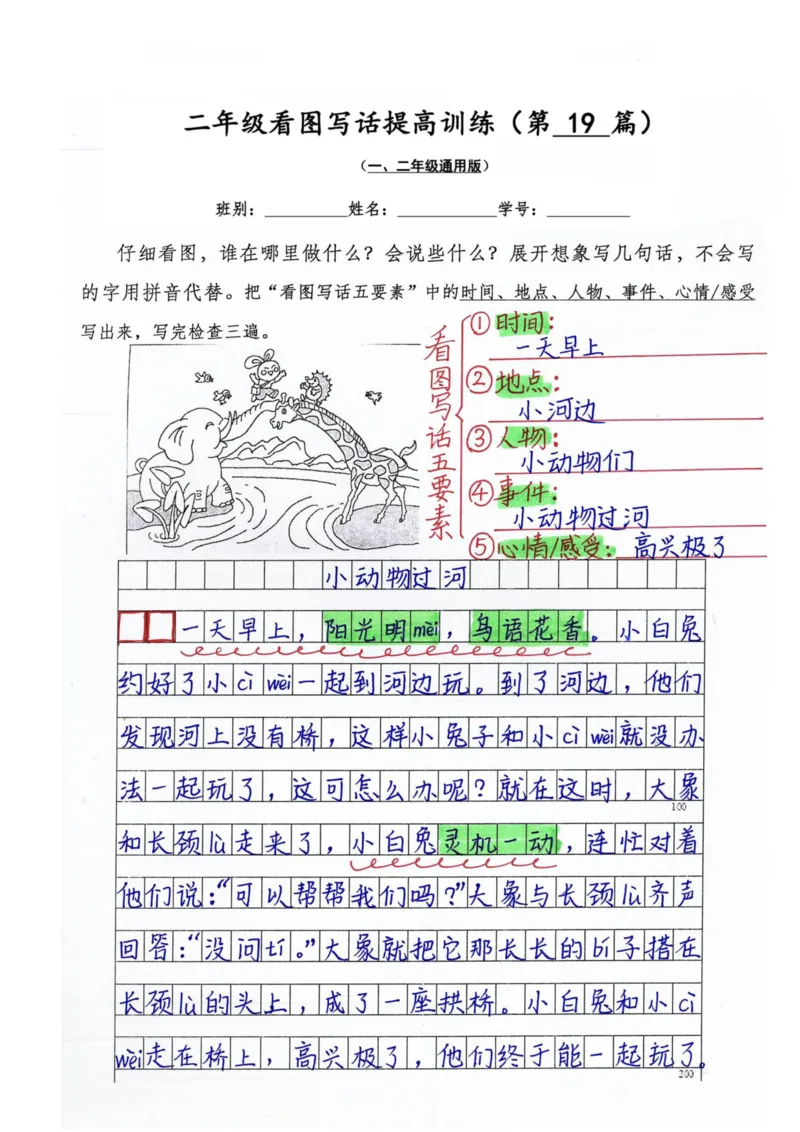 二年级看图写话提高训练（第 19 篇）
（一、二年级通用版）
班别：__________姓名：____________学号：__________
仔细看图，谁在哪里做什么？会说些什么？展开想象写几句话，不会写
的字用拼音代替。把“看图写话五要素”中的时间、地点、人物、事件、心情/感受
写出来，写完检查三遍。
看图写话五要素
①时间：
一天早上
②地点：
小河边
③人物：
小动物们
④事件：
小动物过河
⑤心情/感受：高兴极了
小动物过河
一天早上，阳光明mèi，鸟语花香。小白兔
约好了小cì wèi一起到河边玩。到了河边，他们
发现河上没有桥，这样小兔子和小cì wèi就没办
法一起玩了，这可怎么办呢？就在这时，大象
100
和长颈lù走来了，小白兔灵机一动，连忙对着
他们说：“可以帮帮我们吗？”大象与长颈lù齐声
回答：“没问tí。”大象就把它那长长的bí子搭在
长颈lù的头上，成了一座拱桥。小白兔和小cì
wèi走在桥上，高兴极了，他们终于能一起玩了。
200